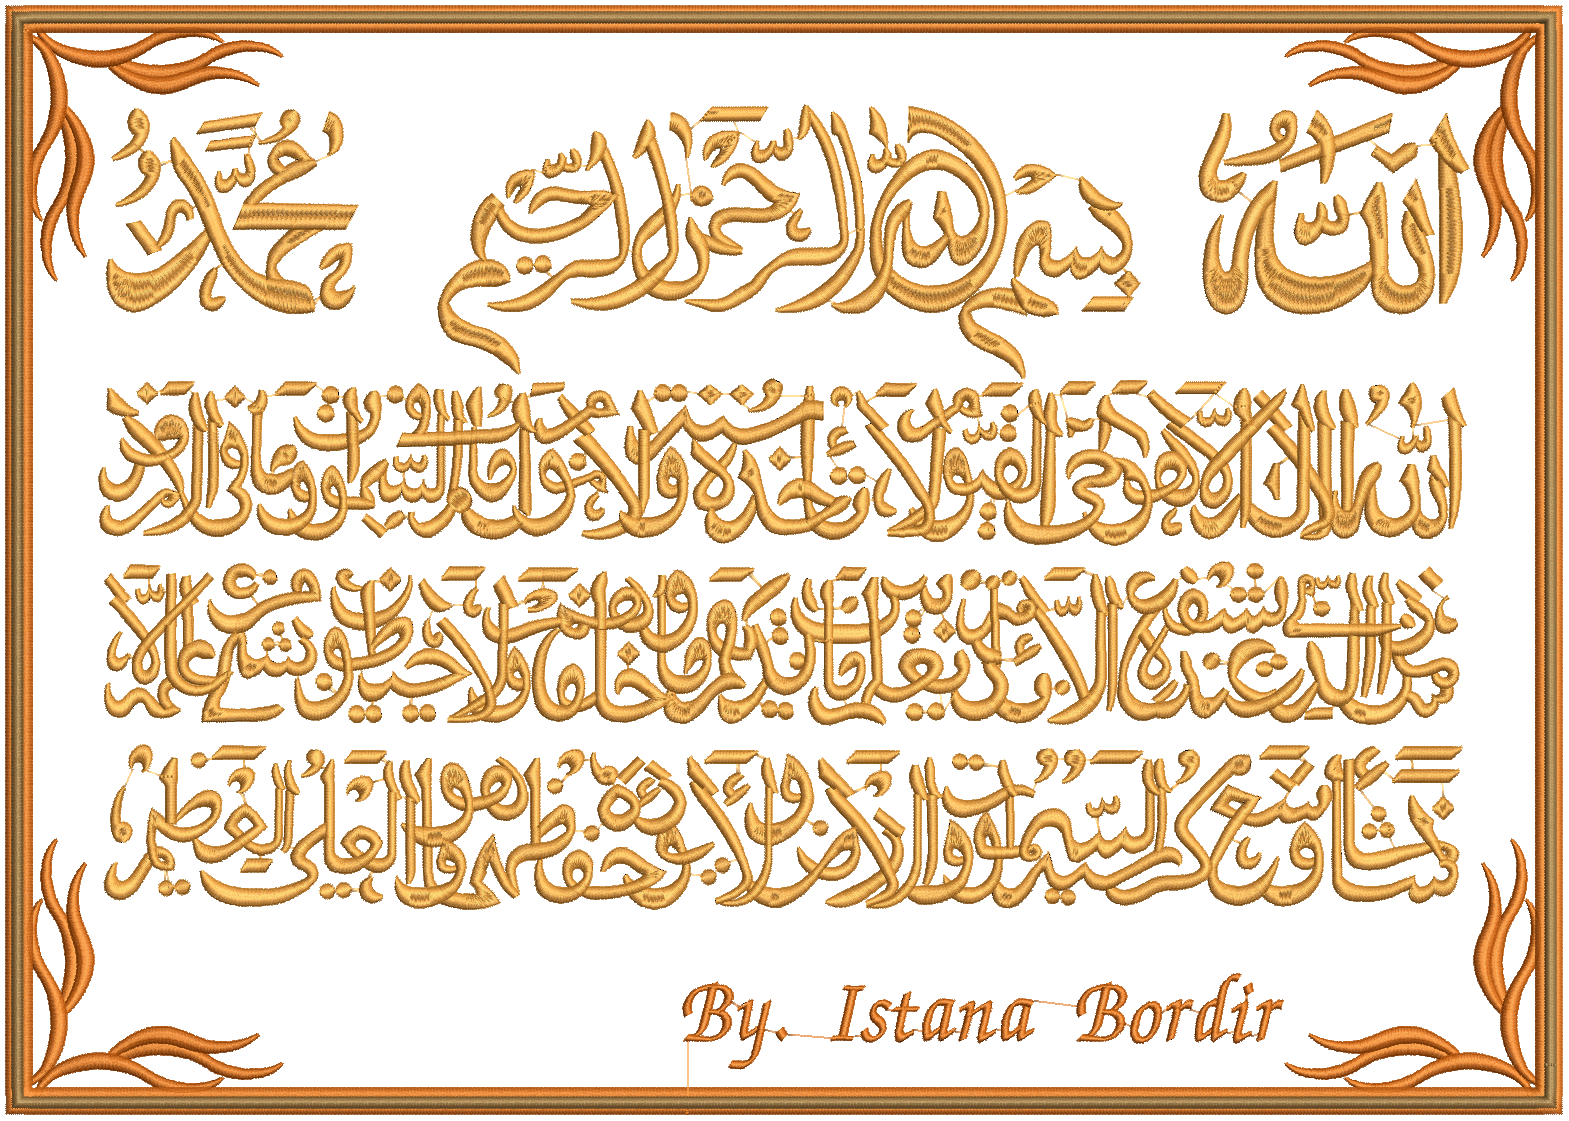 الله
بسم الله الرحمن الرحيم
محمد
الله لا إله إلا هو الحي القيوم لا تأخذه سنة ولا نوم له ما في السموات وما في الأرض
من ذا الذي يشفع عنده إلا بإذنه يعلم ما بين أيديهم وما خلفهم ولا يحيطون بشيء من علمه إلا
بما شاء وسع كرسيه السموات والأرض ولا يؤده حفظهما وهو العلي العظيم
By. Istana Bordir